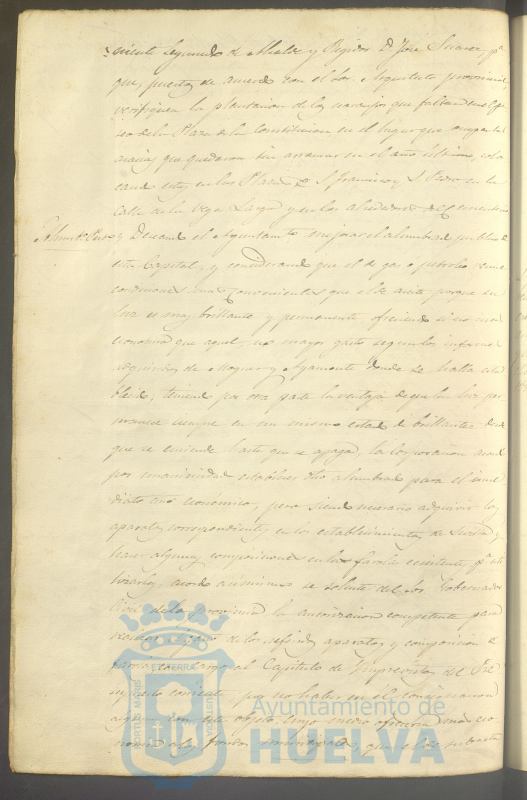 niente Segundo de Alcalde y Regidor D. José Suarez pª
que, puestos de acuerdo con el Sor. Arquitecto provincial,
verifiquen la plantacion de los naranjos que faltan en el
seo de la Plaza de la Constitucion en el lugar que ocupan las
acacias que quedaron sin arrancar en el año último, colo
cando estas en las Plazas de S. Francisco y S. Pedro en la
Calle de la Vega Larga y en los alrededores del cementerio
y Deseando el Ayuntamto mejorar el alumbrado publico de
esta Capital, y considerando que el de gas o petroleo reune
condiciones mas convenientes que el de aceite porque su
luz es mas brillante y permanente ofreciendo si no mas
economia que aquel, no mayor gasto segun los informes
adquiridos de Moguer y Ayamonte donde se halla esta
blecido, teniendo por otra parte la ventaja de que la luz per
manece siempre en un mismo estado de brillantez desde
que se enciende hasta que se apaga, la Corporacion acordó
por unanimidad establecer dho alumbrado para el inme
diato año económico, pero siendo necesario adquirir los
aparatos correspondientes en los establecimientos de Sevilla y
hacer algunas composiciones en los faroles existentes pª uti
lizarlos, acordó asimismo se solicite del Sor. Gobernador
Civil de la provincia la autorizacion competente para
los referidos aparatos y composicion de
faroles con cargo al Capitulo de Imprevistos del Pre
supuesto corriente por no haber en el consignacion
alguna con este objeto, cuyo medio ofrecerá mas eco
nomia a los fondos municipales, que el de subasta
PORTUS MARIS ET TERRAE CUSTODIA
Ayuntamiento de
HUELVA